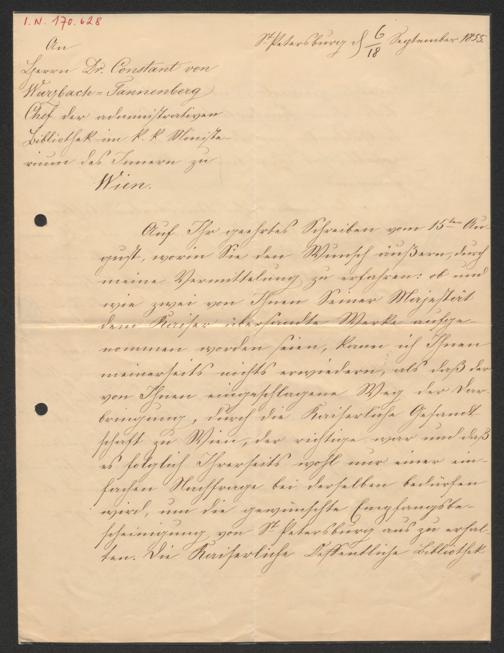 I.N. 170.628
St. Petersburg d 6/18 September 1855
An
Herrn Dr. Constant von
Wurzbach-Tannenberg
Chef der administrativen
Bibliothek im k. k. Ministe-
rium des Innern zu
Wien.
Auf Ihr geehrtes Schreiben vom 15ten Au-
gust, worin Sie den Wunsch äußern, durch
meine Vermittelung zu erfahren: ob und
wie zwei von Ihnen Seiner Majestät
dem Kaiser übersandte Werke aufge-
nommen worden seien, kann ich Ihnen
meinerseits nichts erwiedern, als daß der
von Ihnen eingeschlagene Weg der Dar-
bringung, durch die Kaiserliche Gesandt
schaft zu Wien, der richtige war und daß
es folglich Ihrerseits wohl nur einer ein-
fachen Nachfrage bei derselben bedürfen
wird, um die gewünschte Empfangsbe-
scheinigung von St. Petersburg aus zu erhal-
ten. Die Kaiserliche Öffentliche Bibliothek